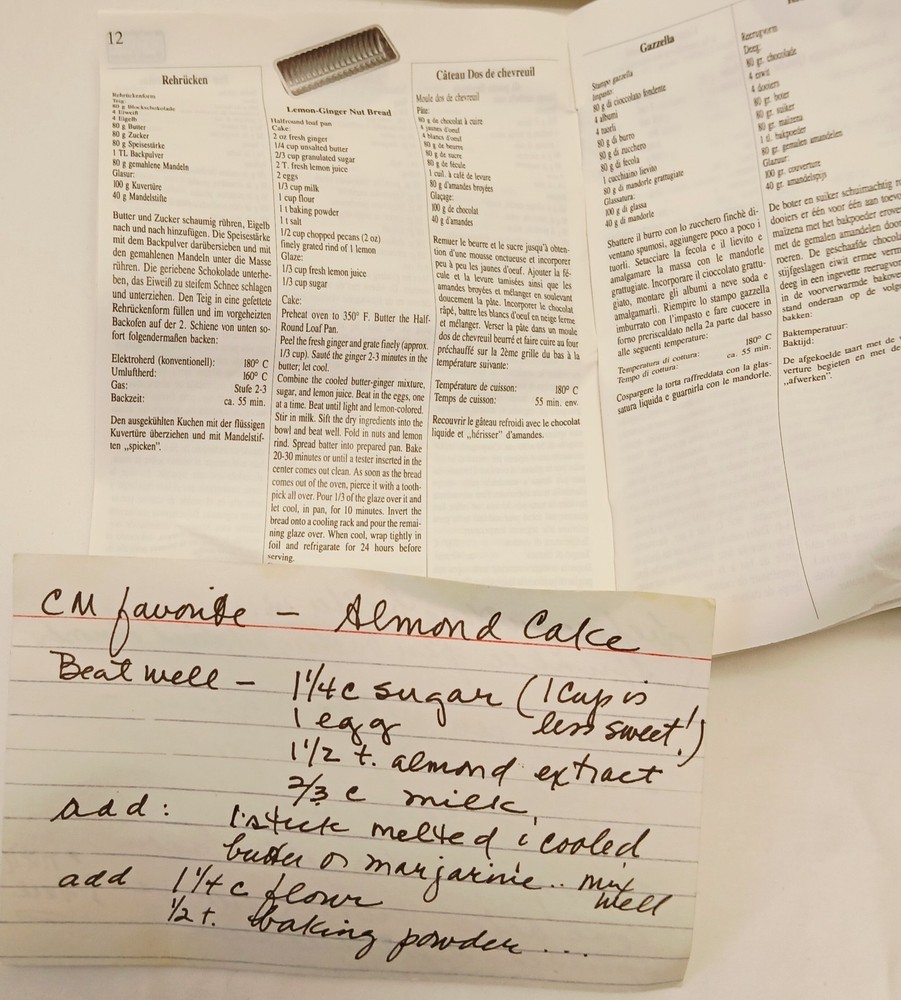 12
Rehrücken
Rehrückenform
Teig:
80 g Blockschokolade
4 Eiweiß
4 Eigelb
80 g Butter
80 g Zucker
80 g Speisestärke
1 TL Backpulver
80 g gemahlene Mandeln
Glasur:
100 g Kuvertüre
40 g Mandelstifte
Butter und Zucker schaumig rühren, Eigelb
nach und nach hinzufügen. Die Speisestärke
mit dem Backpulver darübersieben und mit
den gemahlenen Mandeln unter die Masse
rühren. Die geriebene Schokolade unterhe-
ben, das Eiweiß zu steifem Schnee schlagen
und unterziehen. Den Teig in eine gefettete
Rehrückenform füllen und im vorgeheizten
Backofen auf der 2. Schiene von unten so-
fort folgendermaßen backen:
Elektroherd (konventionell): 180° C
Umluftherd: 160° C
Gas: Stufe 2-3
Backzeit: ca. 55 min.
Den ausgekühlten Kuchen mit der flüssigen
Kuvertüre überziehen und mit Mandelstif-
ten „spicken".
Lemon-Ginger Nut Bread
Halfround loaf pan
Cake:
2 oz fresh ginger
1/4 cup unsalted butter
2/3 cup granulated sugar
2 T. fresh lemon juice
2 eggs
1/3 cup milk
1 cup flour
1 t baking powder
1 t salt
1/2 cup chopped pecans (2 oz)
finely grated rind of 1 lemon
Glaze:
1/3 cup fresh lemon juice
1/3 cup sugar
Cake:
Preheat oven to 350° F. Butter the Half-
Round Loaf Pan.
Peel the fresh ginger and grate finely (approx.
1/3 cup). Sauté the ginger 2-3 minutes in the
butter; let cool.
Combine the cooled butter-ginger mixture,
sugar, and lemon juice. Beat in the eggs, one
at a time. Beat until light and lemon-colored.
Stir in milk. Sift the dry ingredients into the
bowl and beat well. Fold in nuts and lemon
rind. Spread batter into prepared pan. Bake
20-30 minutes or until a tester inserted in the
center comes out clean. As soon as the bread
comes out of the oven, pierce it with a tooth-
pick all over. Pour 1/3 of the glaze over it and
let cool, in pan, for 10 minutes. Invert the
bread onto a cooling rack and pour the remai-
ning glaze over. When cool, wrap tightly in
foil and refrigarate for 24 hours before
serving.
Câteau Dos de chevreuil
Moule dos de chevreuil
Pâte:
80 g de chocolat à cuire
4 jaunes d'oeuf
4 blancs d'oeuf
80 g de beurre
80 g de sucre
80 g de fécule
1 cuil. à café de levure
80 g d'amandes broyées
Glaçage:
100 g de chocolat
40 g d'amandes
Remuer le beurre et le sucre jusqu'à obten-
tion d'une mousse onctueuse et incorporer
peu à peu les jaunes d'oeuf. Ajouter la fé-
cule et la levure tamisées ainsi que les
amandes broyées et mélanger en soulevant
doucement la pâte. Incorporer le chocolat
râpé, battre les blancs d'oeuf en neige ferme
et mélanger. Verser la pâte dans un moule
dos de chevreuil beurré et faire cuire au four
préchauffé sur la 2ème grille du bas à la
température suivante:
Température de cuisson: 180° C
Temps de cuisson: 55 min. env.
Recouvrir le gâteau refroidi avec le chocolat
liquide et „hérisser" d'amandes.
Gazzella
Stampo gazzella
Impasto:
80 g di cioccolato fondente
4 albumi
4 tuorli
80 g di burro
80 g di zucchero
80 g di fecola
1 cucchiaino lievito
80 g di mandorle grattugiate
Glassatura:
100 g di glassa
40 g di mandorle
Sbattere il burro con lo zucchero finchè di-
ventano spumosi, aggiungere poco a poco i
tuorli. Setacciare la fecola e il lievito e
amalgamare la massa con le mandorle
grattugiate. Incorporare il cioccolato grattu-
giato, montare gli albumi a neve soda e
amalgamarli. Riempire lo stampo gazzella
imburrato con l'impasto e fare cuocere in
forno preriscaldato nella 2a parte dal basso
alle seguenti temperature:
Temperatura di cottura: 180° C
Tempo di cottura: ca. 55 min.
Cospargere la torta raffreddata con la glas-
satura liquida e guarnirla con le mandorle.
Reerugvorm
Deeg:
80 gr. chocolade
4 eiwit
4 dooiers
80 gr. boter
80 gr. suiker
80 gr. maizena
1 tl. bakpoeder
80 gr. gemalen amandelen
Glazuur:
100 gr. couverture
40 gr. amandelspijs
De boter en suiker schuimachtig
dooiers er één voor één aan toevo
maïzena met het bakpoeder erove
met de gemalen amandelen door
roeren. De geschaafde chocola
stijfgeslagen eiwit ermee verm
deeg in een ingevette reerugvor
in de voorverwarmde bakove
stand onderaan op de volg
bakken:
Baktemperatuur:
Baktijd:
De afgekoelde taart met de
verture begieten en met de
„afwerken".
CM favorite - Almond Cake
Beat well - 1 1/4 c sugar (1 cup is
less sweet!)
1 egg
1 1/2 t. almond extract
2/3 c milk
add: 1 stick melted & cooled
butter or marjarine.. mix
well
add 1 1/4 c flour
1/2 t. baking powder...